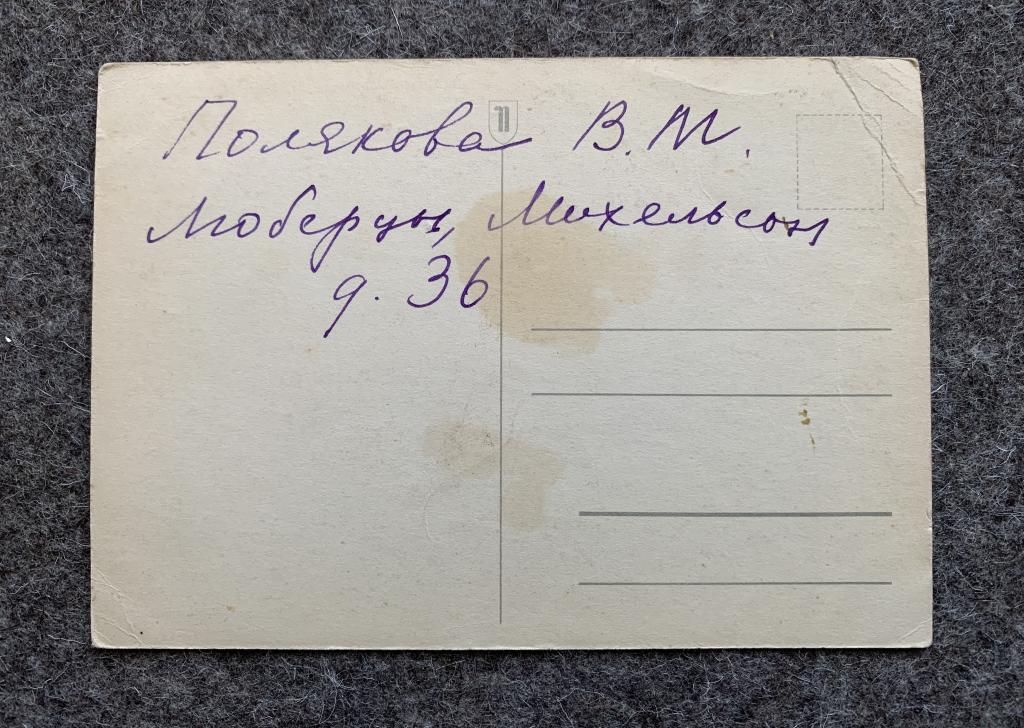 Полякова В. М.
Люберцы, Михельсон
д. 36